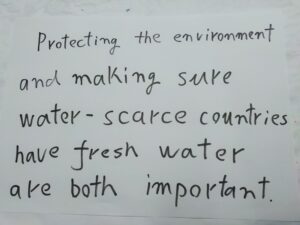 Protecting the environment
and making sure
water-scarce countries
have fresh water
are both important.